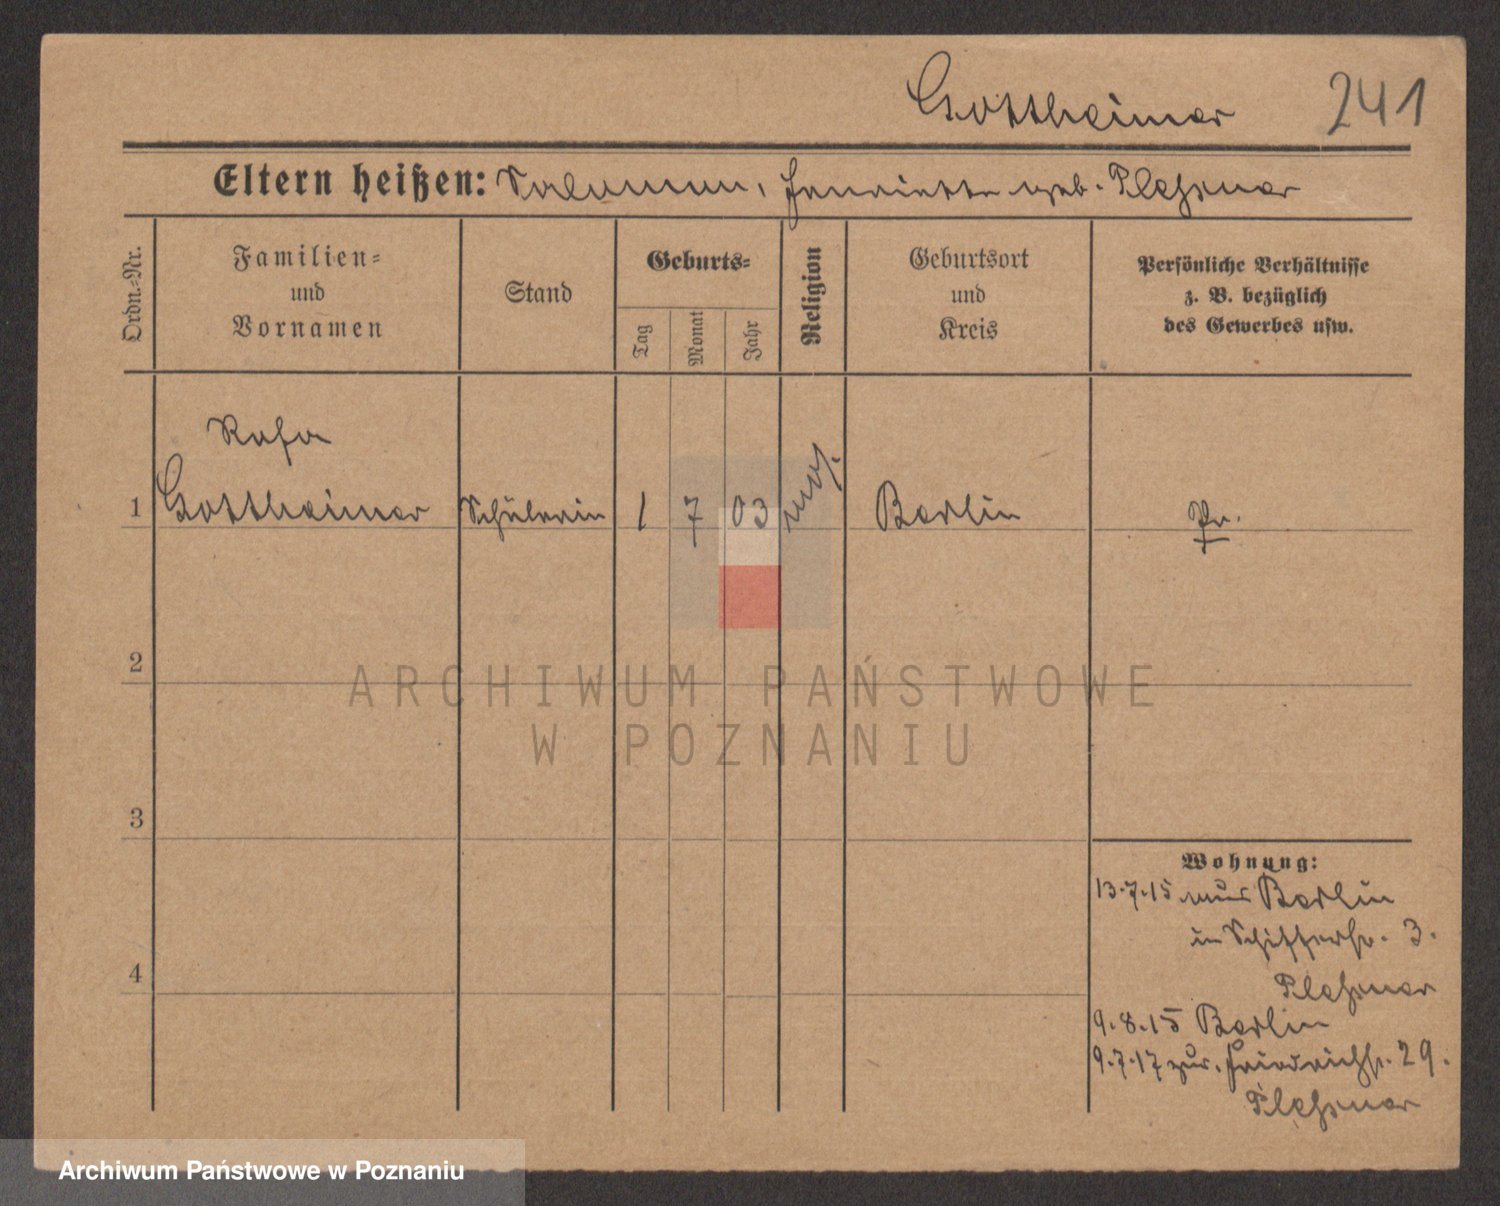 Gottheimer 241
Eltern heißen: Salomon, Henriette geb. Pleßner
Ordn.-Nr.
Familien-
und
Vornamen
Stand
Geburts-
Tag
Monat
Jahr
Religion
Geburtsort
und
Kreis
Persönliche Verhältnisse
z. B. bezüglich
des Gewerbes usw.
Rosa
1 Gottheimer Schülerin 1 7 03 mos. Berlin Pr.
2
ARCHIWUM PAŃSTWOWE
W POZNANIU
3
4
Wohnung:
13.7.15 aus Berlin
in Schifferstr. 3.
Pleßner
9.8.15 Berlin
9.7.17 zur. Friedrichstr. 29.
Pleßner
Archiwum Państwowe w Poznaniu